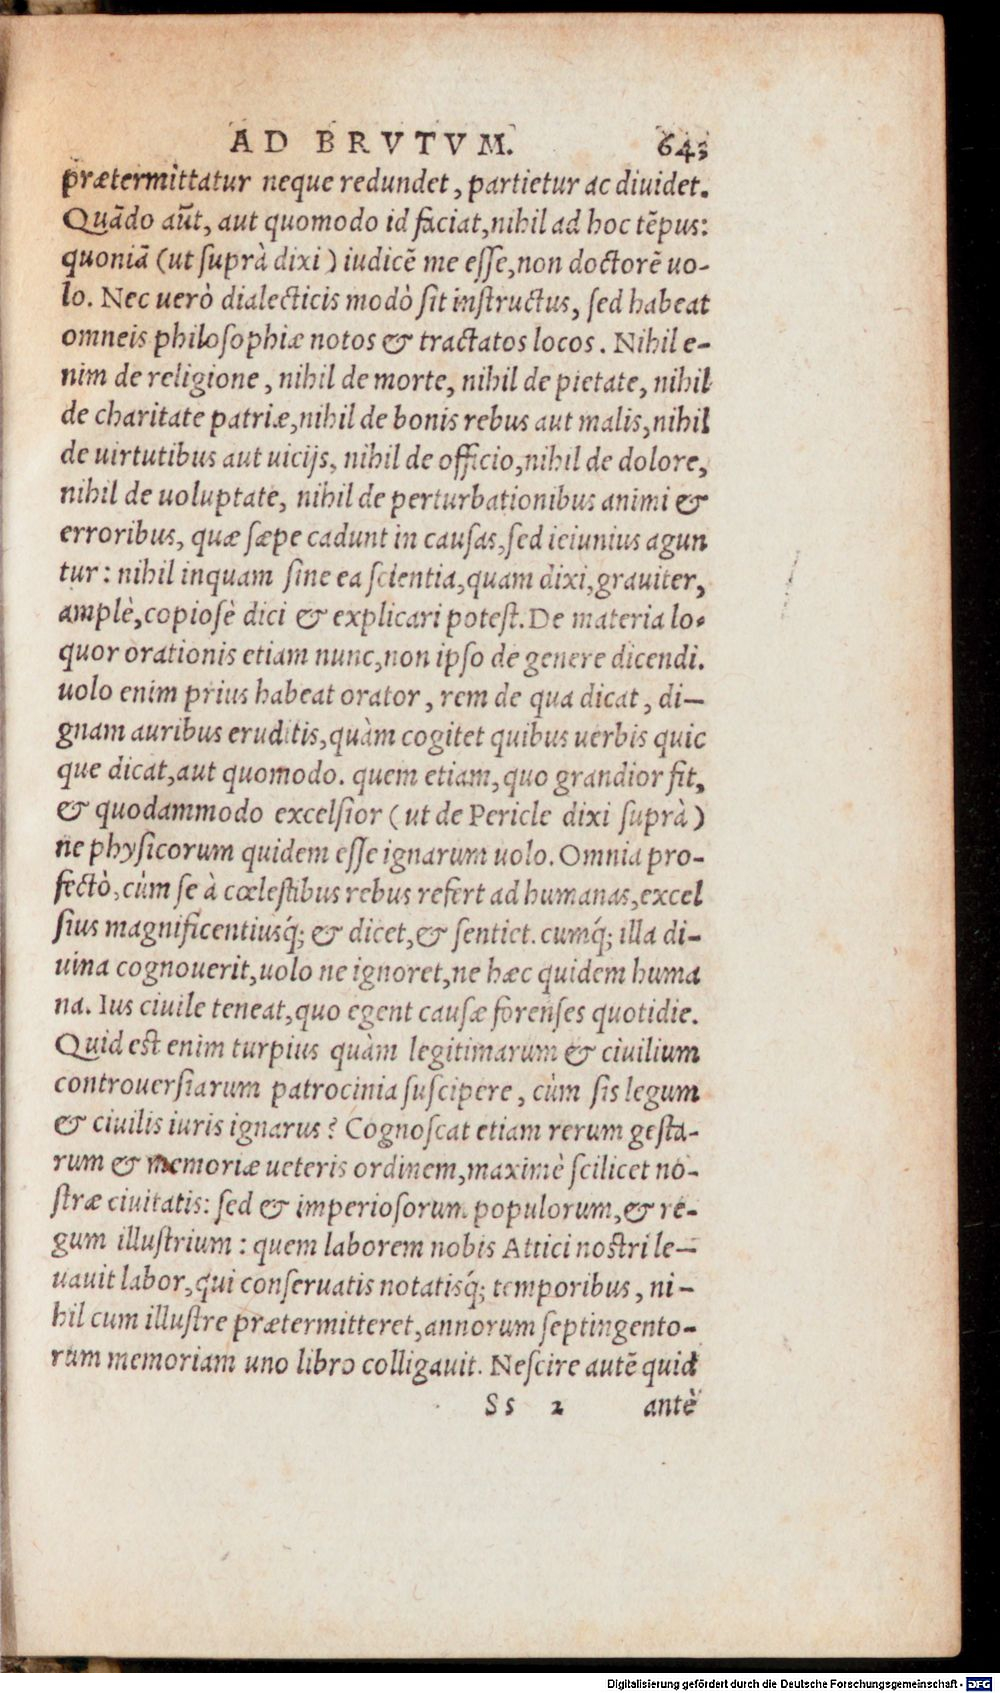 AD BRVTVM. 643
prætermittatur neque redundet, partietur ac diuidet.
Quãdo aũt, aut quomodo id faciat, nihil ad hoc tẽpus:
quoniã (ut suprà dixi) iudicẽ me esse, non doctorẽ uo-
lo. Nec uerò dialecticis modò sit instructus, sed habeat
omneis philosophiæ notos & tractatos locos. Nihil e-
nim de religione, nihil de morte, nihil de pietate, nihil
de charitate patriæ, nihil de bonis rebus aut malis, nihil
de uirtutibus aut uicijs, nihil de officio, nihil de dolore,
nihil de uoluptate, nihil de perturbationibus animi &
erroribus, quæ sæpe cadunt in causas, sed ieiunius agun
tur: nihil inquam sine ea scientia, quam dixi, grauiter,
amplè, copiosè dici & explicari potest. De materia lo-
quor orationis etiam nunc, non ipso de genere dicendi.
uolo enim prius habeat orator, rem de qua dicat, di-
gnam auribus eruditis, quàm cogitet quibus uerbis quic
que dicat, aut quomodo. quem etiam, quo grandior fit,
& quodammodo excelsior (ut de Pericle dixi suprà)
ne physicorum quidem esse ignarum uolo. Omnia pro-
fectò, cùm se à cœlestibus rebus refert ad humanas, excel
sius magnificentiusq́; & dicet, & sentiet. cumq́; illa di-
uina cognouerit, uolo ne ignoret, ne hæc quidem huma
na. Ius ciuile teneat, quo egent causæ forenses quotidie.
Quid est enim turpius quàm legitimarum & ciuilium
controuersiarum patrocinia suscipere, cùm sis legum
& ciuilis iuris ignarus? Cognoscat etiam rerum gesta-
rum & memoriæ ueteris ordinem, maximè scilicet no-
stræ ciuitatis: sed & imperiosorum populorum, & re-
gum illustrium: quem laborem nobis Attici nostri le-
uauit labor, qui conseruatis notatisq́; temporibus, ni-
hil cum illustre prætermitteret, annorum septingento-
rum memoriam uno libro colligauit. Nescire autẽ quid
Ss 2 antè
Digitalisierung gefördert durch die Deutsche Forschungsgemeinschaft - DFG